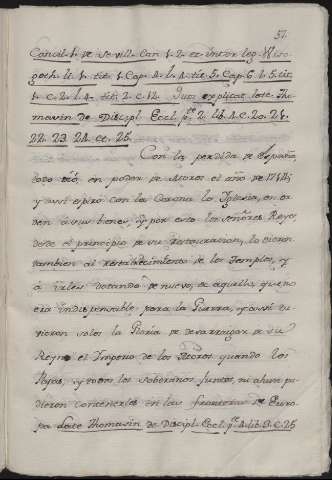 51.
Concil. 1. de Sevill. Can. 1. 2. et inter leg. Wiso-
goth. li. 1. tit. 1. Cap. 4. l. 4. tit. 5. Cap. 6. l. 5. tit.
1. c. 2. l. 4. tit. 2. c. 12. Quae explicat late Tho-
masin de Discipl. Eccl. p.e 2. lib. 4. C. 20. 21.
22. 23. 24. et 25.
Con la perdida de España,
todo dió en poder de Moros el año de 1714;
y assi espiró con la Corona la Iglesia, en or-
den á sus bienes, y por esto los Señores Reyes,
desde el principio de su restauracion, lo dieron
tambien al restablecimiento de los Templos, y
á irles dotando de nuevo, de aquello que no
era indispensable para la Guerra, y assi tu-
vieron solos la Gloria de desarraygar de su
Reyno el Imperio de los Moros quando los
Papas, y todos los Soberanos juntos, ni ahun pu-
dieron contenerles en las fronteras de Euro-
pa late Thomasin de Discipl. Eccl. p.e 4. lib. 3. C. 25